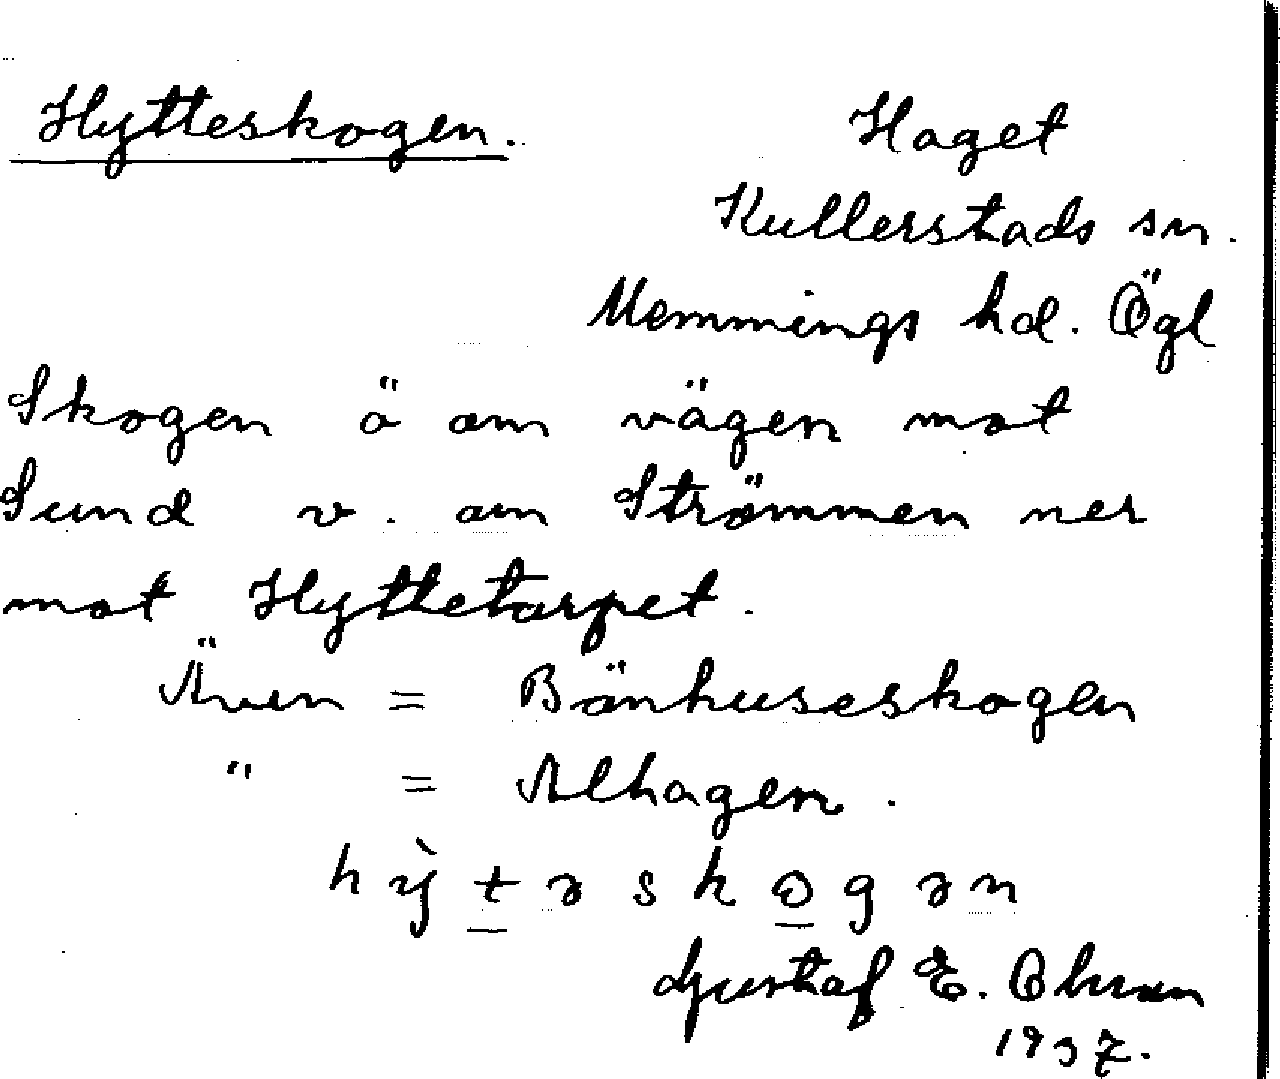 Hytteskogen.
Haget
Kullerstads sn.
Memmings hd. Ögl
Skogen ä om vägen mot
Sund v. om Strömmen ner
mot Hyttetorpet.
Även = Bönhuseskogen
" = Alhagen.
h ỳ t ə s k ꙩ g ə n
Gustaf E. Olsson
1937.